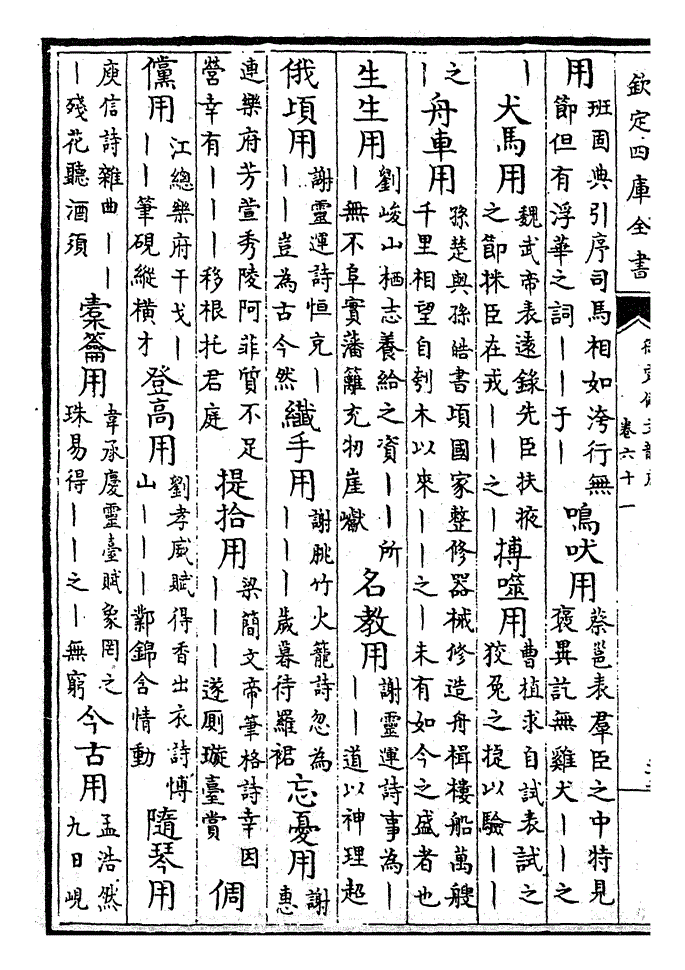 欽定四庫全書
卷六十一
用 班固典引序司馬相如洿行無節但有浮華之詞||于| 鳴吠用 蔡邕表羣臣之中特見褒異訖無雞犬||之
| 犬馬用 魏武帝表遠錄先臣扶掖之節抹臣在戎||之| 搏噬用 曹植求自試表試之狡兔之捷以驗||
之| 舟車用 孫楚與孫皓書項國家整修器械修造舟楫樓船萬艘千里相望自刳木以來||之|未有如今之盛者也
生生用 劉峻山栖志養給之資||所|無不阜實藩籬充牣崖巘 名教用 謝靈運詩事為|||道以神理超
俄頃用 謝靈運詩恒充|||豈為古今然 纖手用 謝朓竹火籠詩忽為|||歲暮待羅裙 忘憂用 謝惠
連樂府芳萱秀陵阿菲質不足營幸有|||移根托君庭 提拾用 梁簡文帝筆格詩幸因|||遂厠璇臺賞 倜
儻用 江總樂府干戈|||筆硯縱橫才 登高用 劉孝威賦得香出衣詩慱山|||鄴錦含情動 隨琴用
庾信詩雜曲|||殘花聽酒須 橐籥用 韋承慶靈臺賦象罔之珠易得||之|無窮 今古用 孟浩然九日峴